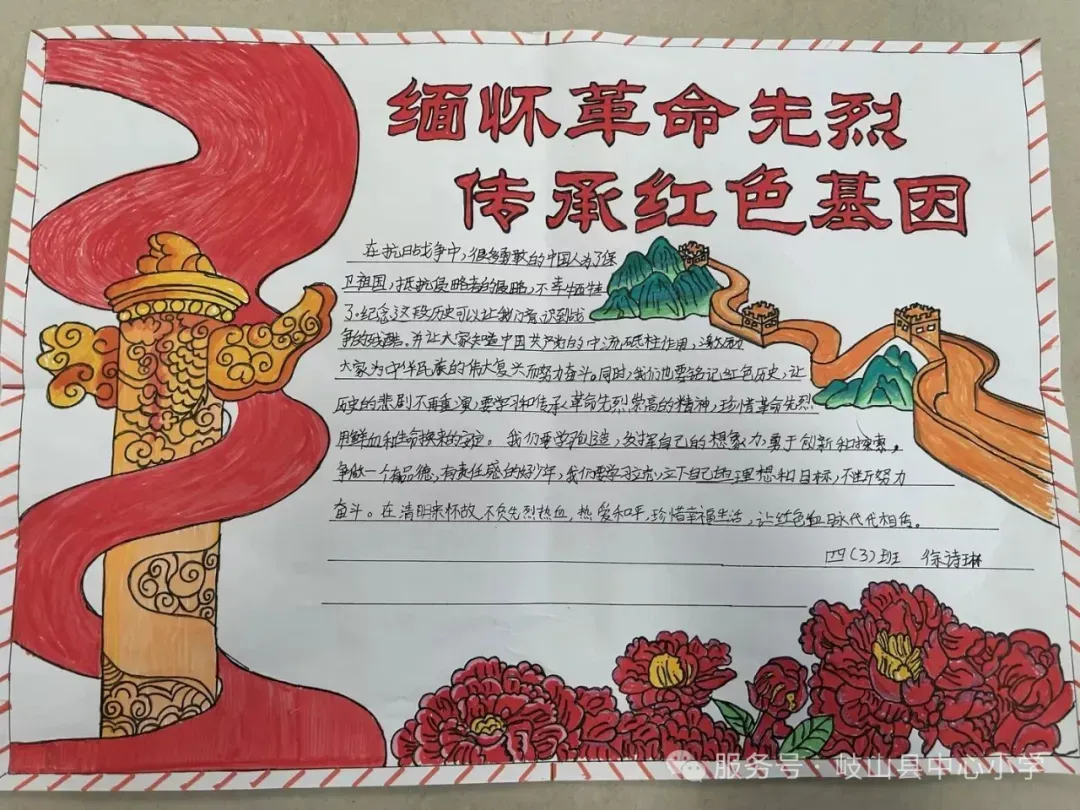 缅怀革命先烈
传承红色基因
在抗日战争中，很多勇敢的中国人为了保
卫祖国，抵抗侵略者的侵略，不幸牺牲
了。纪念这段历史可以让我们意识到战
争的残酷，并让大家知道中国共产党的中流砥柱作用，激励
大家为中华民族的伟大复兴而努力奋斗。同时，我们也要铭记红色历史，让
历史的悲剧不再重演，要学习和传承革命先烈崇高的精神，珍惜革命先烈
用鲜血和生命换来的。我们要学，发挥自己的想象力，勇于创新和探索。
争做一个有品德，有责任感的好少年，我们要学习，立下自己的理想和目标，不断努力
奋斗。在清明来怀故，不负先烈热血，热爱和平，珍惜幸福生活，让红色血脉代代相传。
四(3)班 徐诗琳
服务号·岐山县中心小学